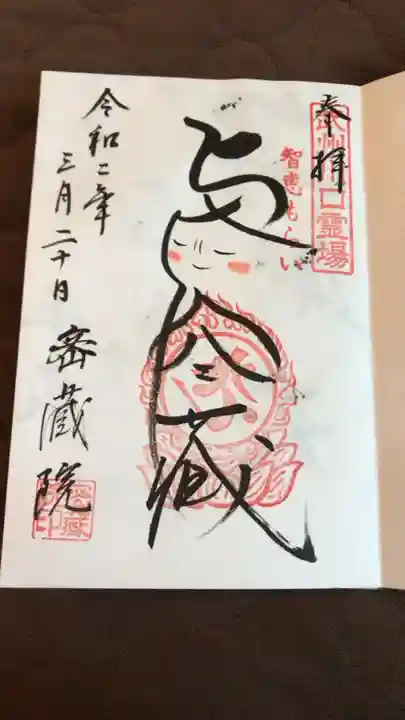 奉拝
武州川口霊場
智恵もらい
虚空蔵
令和二年
三月二十日
密蔵院